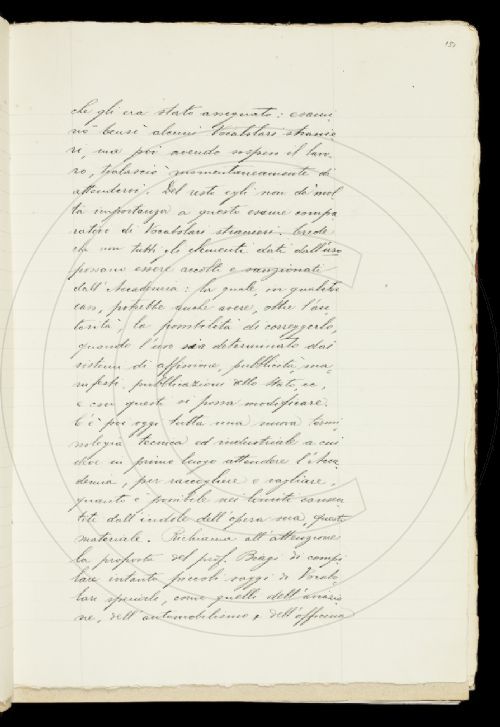 che gli era stato assegnato: esami
nò bensì alcuni Vocabolari stranie
ri, ma poi avendo sospeso il lavo
ro, tralasciò momentaneamente di
attendervi. Del resto egli non dà mol
ta importanza a questo esame compa
rativo di Vocabolari stranieri. Crede
che non tutti gli elementi dati dall'uso
possano essere accolti e sanzionati
dall'Accademia: la quale, in qualche
caso, potrebbe anche avere, oltre l'au
torità, la possibilità di correggerlo,
quando l'uso sia determinato dai
sistemi di affissione, pubblicità, ma
nifesti, pubblicazioni dello Stato, ec,
e con questi si possa modificare.
C'è poi oggi tutta una nuova termi
nologia tecnica ed industriale a cui
deve in primo luogo attendere l'Acca
demia, per raccogliere e vagliare,
quanto è possibile nei limiti consen
titi dall'indole dell'opera sua, questo
materiale. Richiama all'attenzione
la proposta del prof. Biagi di compi
lare intanto piccoli saggi di Vocabo
lari speciali, come quello dell'aviazio
ne, dell'automobilismo, dell'officina